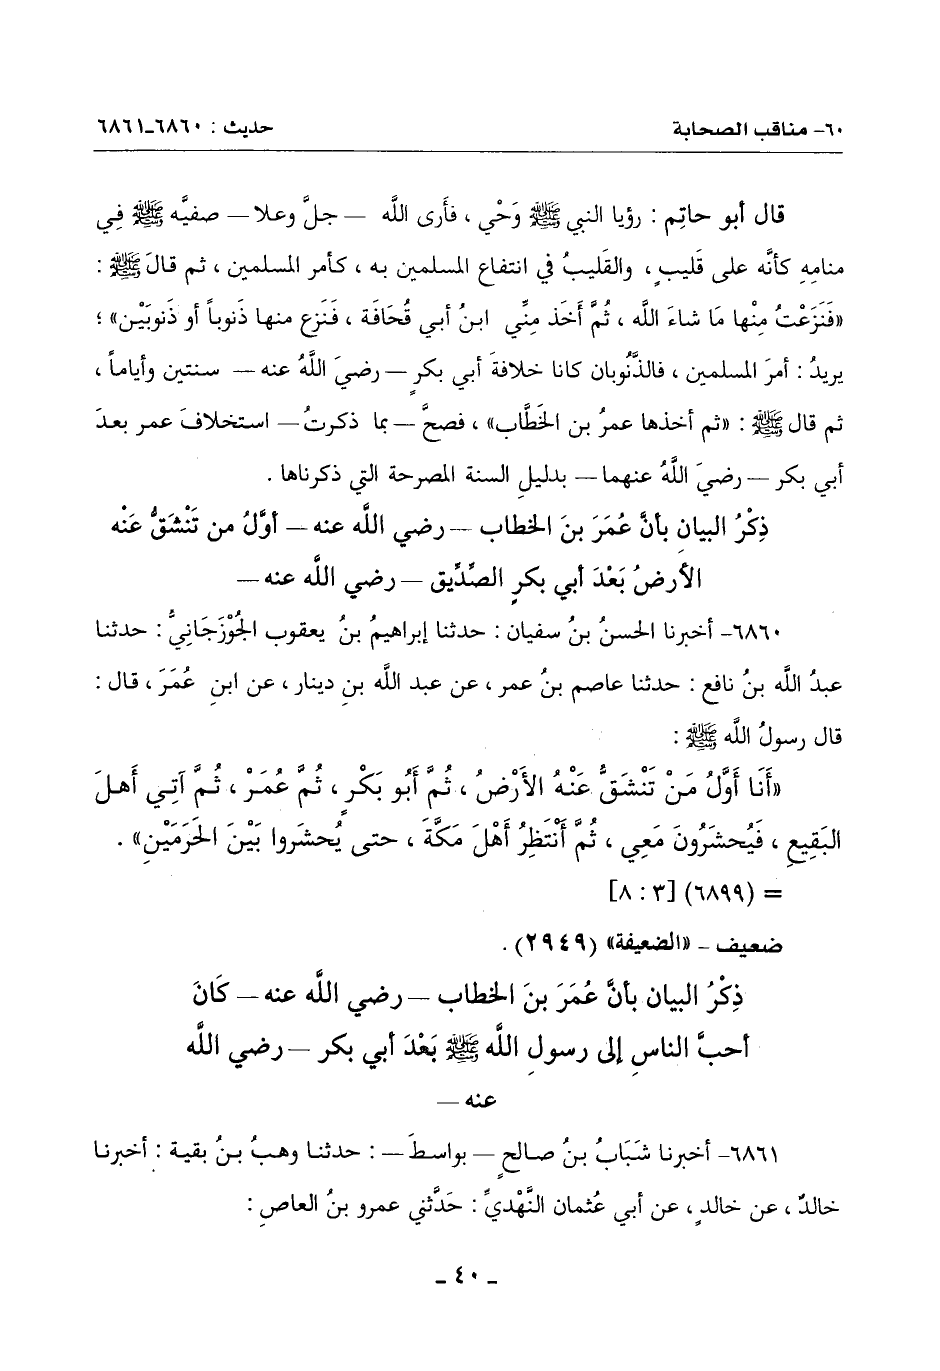 ٦٠- مناقب الصحابة
حديث : ٦٨٦٠-٦٨٦١
قال أبو حاتِم : رؤيا النبي ﷺ وَحْي ، فأَرى اللَّه — جلَّ وعلا — صفيَّه ﷺ فِي
منامِهِ كأنَّه على قَليبٍ ، والقَليبُ في انتفاع المسلمين به ، كأمر المسلمين ، ثم قالَ ﷺ :
«فَنَزَعْتُ مِنْها مَا شاءَ اللَّه ، ثُمَّ أخَذ مِنِّي ابنُ أبي قُحَافَة ، فَنَزع منها ذَنوباً أو ذَنوبَيْن» ؛
يريدُ : أمرَ المسلمين ، فالذَّنُوبان كانا خلافةَ أبي بكرٍ — رضيَ اللَّهُ عنه — سنتين وأياماً ،
ثم قال ﷺ : «ثم أخذها عمرُ بن الخَطَّاب» ، فصحَّ — بما ذكرتُ — استخلافَ عمر بعدَ
أبي بكر — رضيَ اللَّهُ عنهما — بدليلِ السنة المصرحة التي ذكرناها .
ذِكْرُ البيان بأنَّ عُمَرَ بنَ الخطاب — رضي اللَّه عنه — أوَّلُ من تَنْشَقُّ عَنْه
الأرضُ بَعْدَ أبي بكرٍ الصِّدِّيق — رضي اللَّه عنه —
٦٨٦٠- أخبرنا الحسنُ بنُ سفيان : حدثنا إبراهيمُ بنُ يعقوب الجُوْزَجَانِيُّ : حدثنا
عبدُ اللَّه بنُ نافع : حدثنا عاصم بنُ عمر ، عن عبد اللَّه بنِ دينار ، عن ابنِ عُمَرَ ، قال :
قال رسولُ اللَّه ﷺ :
«أَنَا أَوَّلُ مَنْ تَنْشَقُّ عَنْهُ الأَرْضُ ، ثُمَّ أَبُو بَكْرٍ ، ثُمَّ عُمَرْ ، ثُمَّ آتِي أَهلَ
البَقِيعِ ، فَيُحشَرُونَ مَعِي ، ثُمَّ أَنْتَظِرُ أَهْلَ مَكَّةَ ، حتى يُحشَروا بَيْنَ الحَرَمَيْنِ» .
= (٦٨٩٩) [٣ : ٨]
ضعيف ـ «الضعيفة» (٢٩٤٩) .
ذِكْرُ البيان بأنَّ عُمَرَ بنَ الخطاب — رضي اللَّه عنه — كَانَ
أحبَّ الناسِ إلى رسولِ اللَّه ﷺ بَعْدَ أبي بكر — رضي اللَّه
عنه —
٦٨٦١- أخبرنا شَبَابُ بنُ صالحٍ — بواسطَ — : حدثنا وهبُ بنُ بقية : أخبرنا
خالدٌ ، عن خالدٍ ، عن أبي عُثمان النَّهْديِّ : حَدَّثني عمرو بنُ العاصِ :
ـ ٤٠ ـ